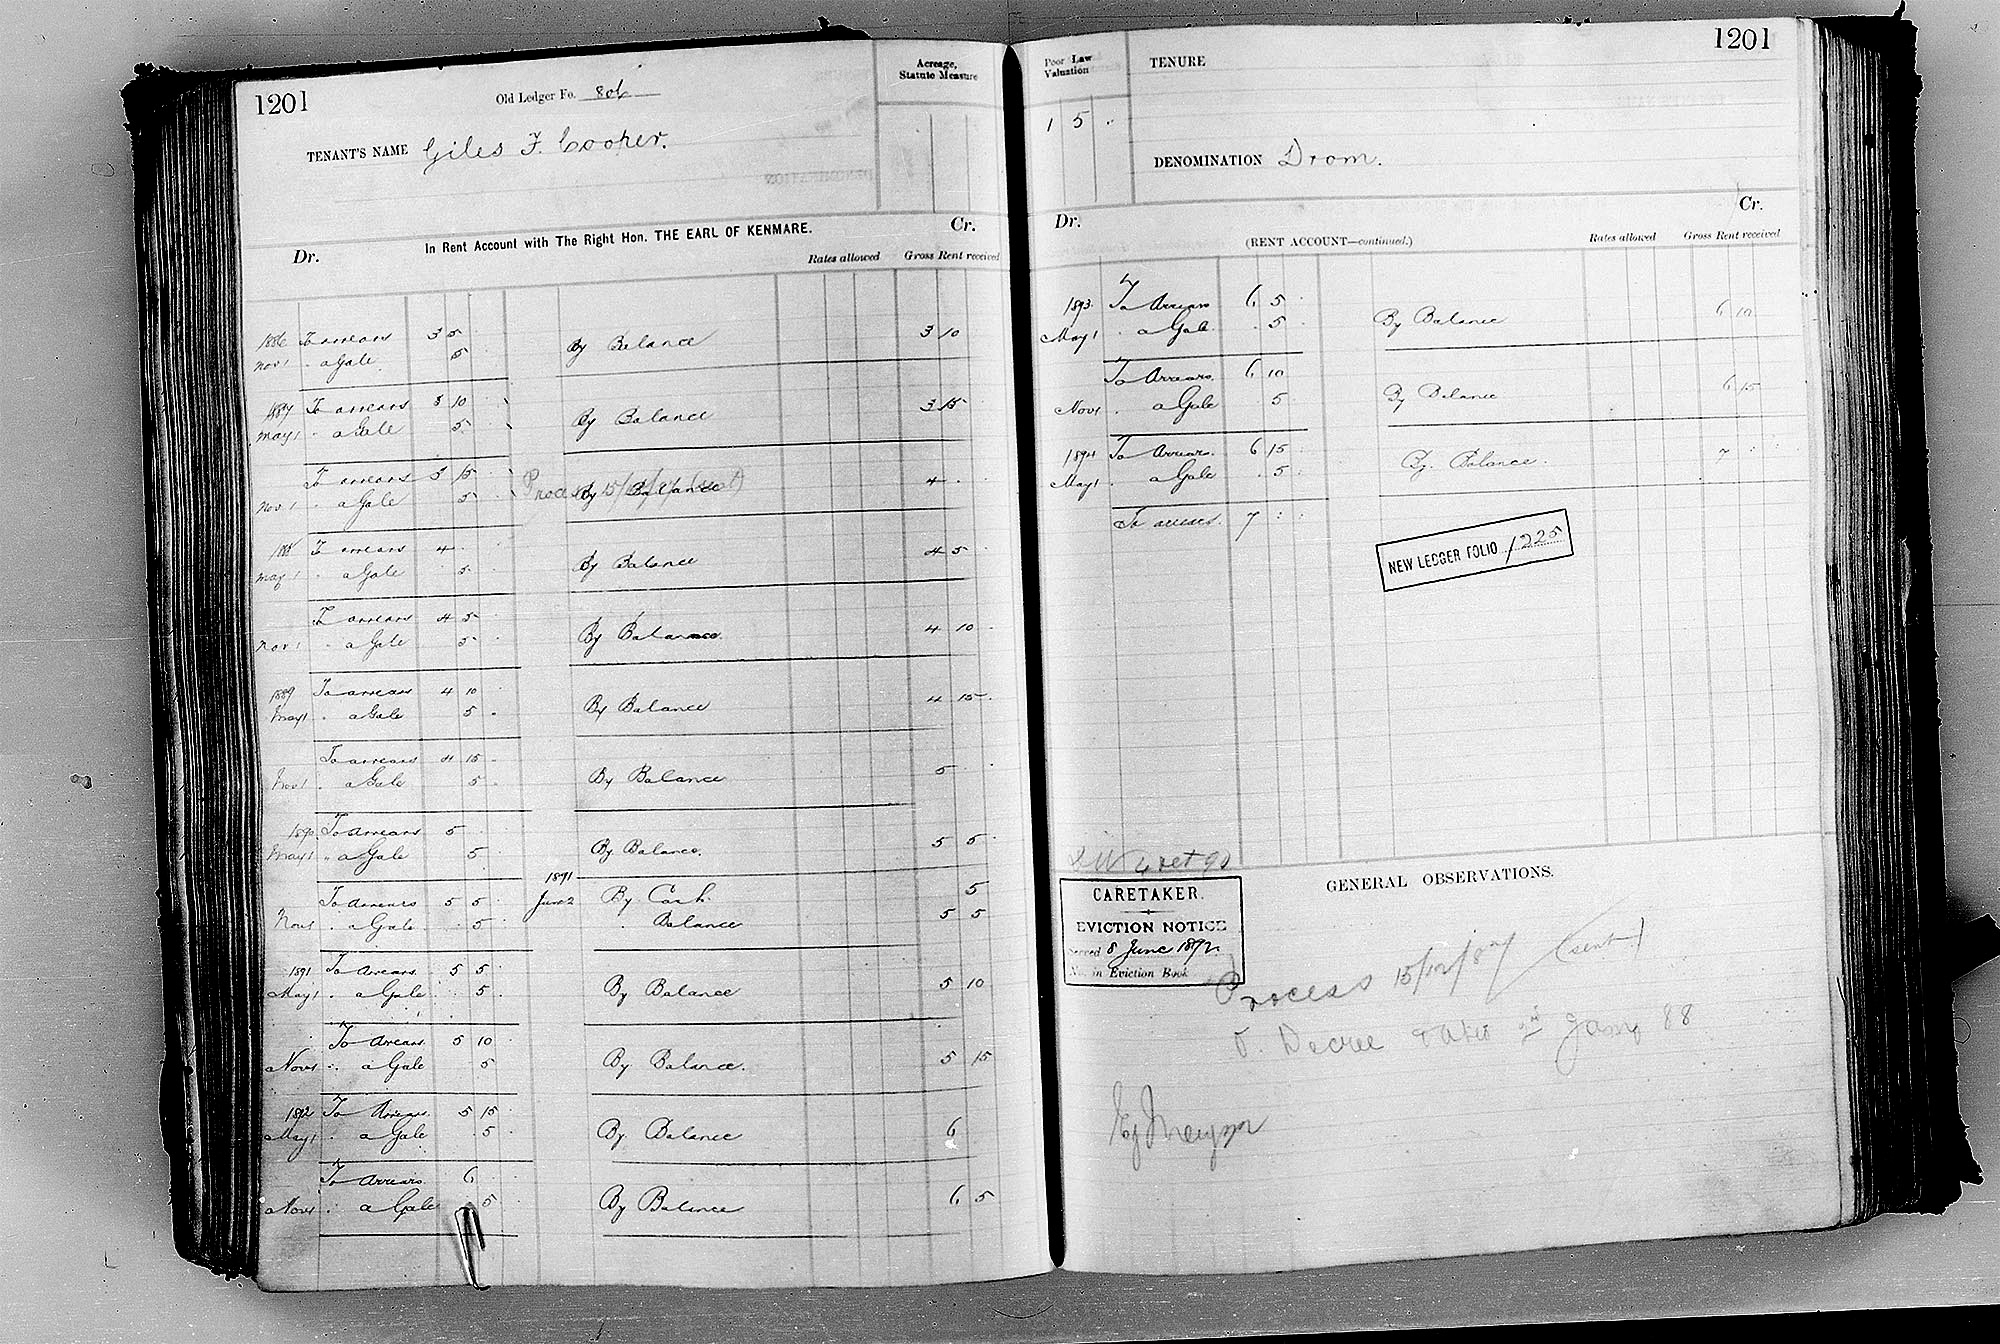 1201
Old Ledger Fo. 806
Acreage, Statute Measure
TENANT'S NAME Giles F. Cooper.
In Rent Account with The Right Hon. THE EARL OF KENMARE.
Dr. Cr.
Rates allowed Gross Rent received
1886 To arrears 3 5 By Balance 3 10
Nov 1 " a Gale 5
1887 To arrears 3 10 By Balance 3 15
May 1 " a Gale 5
To arrears 3 15 Process 15/12/87 (sent) By Balance 4
Nov 1 " a Gale 5
1888 To arrears 4 By Balance 4 5
May 1 " a Gale 5
To arrears 4 5 By Balance 4 10
Nov 1 " a Gale 5
1889 To arrears 4 10 By Balance 4 15
May 1 " a Gale 5
To arrears 4 15 By Balance 5
Nov 1 " a Gale 5
1890 To arrears 5 By Balance 5 5
May 1 " a Gale 5
To arrears 5 5 1891 June 2 By Cash 5
Nov 1 " a Gale 5 " Balance 5 5
1891 To Arrears 5 5 By Balance 5 10
May 1 " a Gale 5
To Arrears 5 10 By Balance. 5 15
Nov 1 " a Gale 5
1892 To Arrears 5 15 By Balance 6
May 1 " a Gale 5
To Arrears 6 By Balance 6 5
Nov 1 " a Gale 5
1201
Poor Law Valuation
1 5 "
TENURE
DENOMINATION Drom.
Dr. Cr.
(RENT ACCOUNT—continued.)
Rates allowed Gross Rent received
1893 To Arrears 6 5 By Balance 6 10
May 1 " a Gale 5
To Arrears 6 10 By Balance 6 15
Nov 1 " a Gale 5
1894 To Arrears 6 15 By Balance. 7
May 1 a Gale 5
To arrears. 7
NEW LEDGER FOLIO 1225
GENERAL OBSERVATIONS.
CARETAKER.
EVICTION NOTICE
Served 8 June 1892
No. in Eviction Book
Process 15/12/87 (sent)
Decree Jany 88